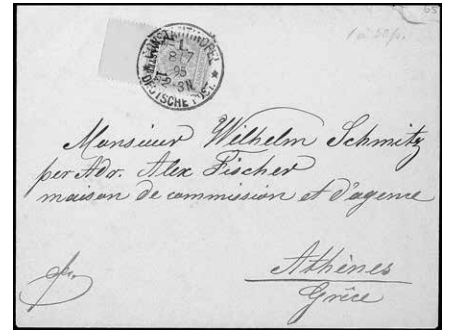 CONSTANTINOPEL
1
8/7
95
12-3N
* DEUTSCHE POST *
Monsieur Wilhelm Schmitz
per Adr. Alex Fischer
maison de commission et d'agence
Athènes
Grèce